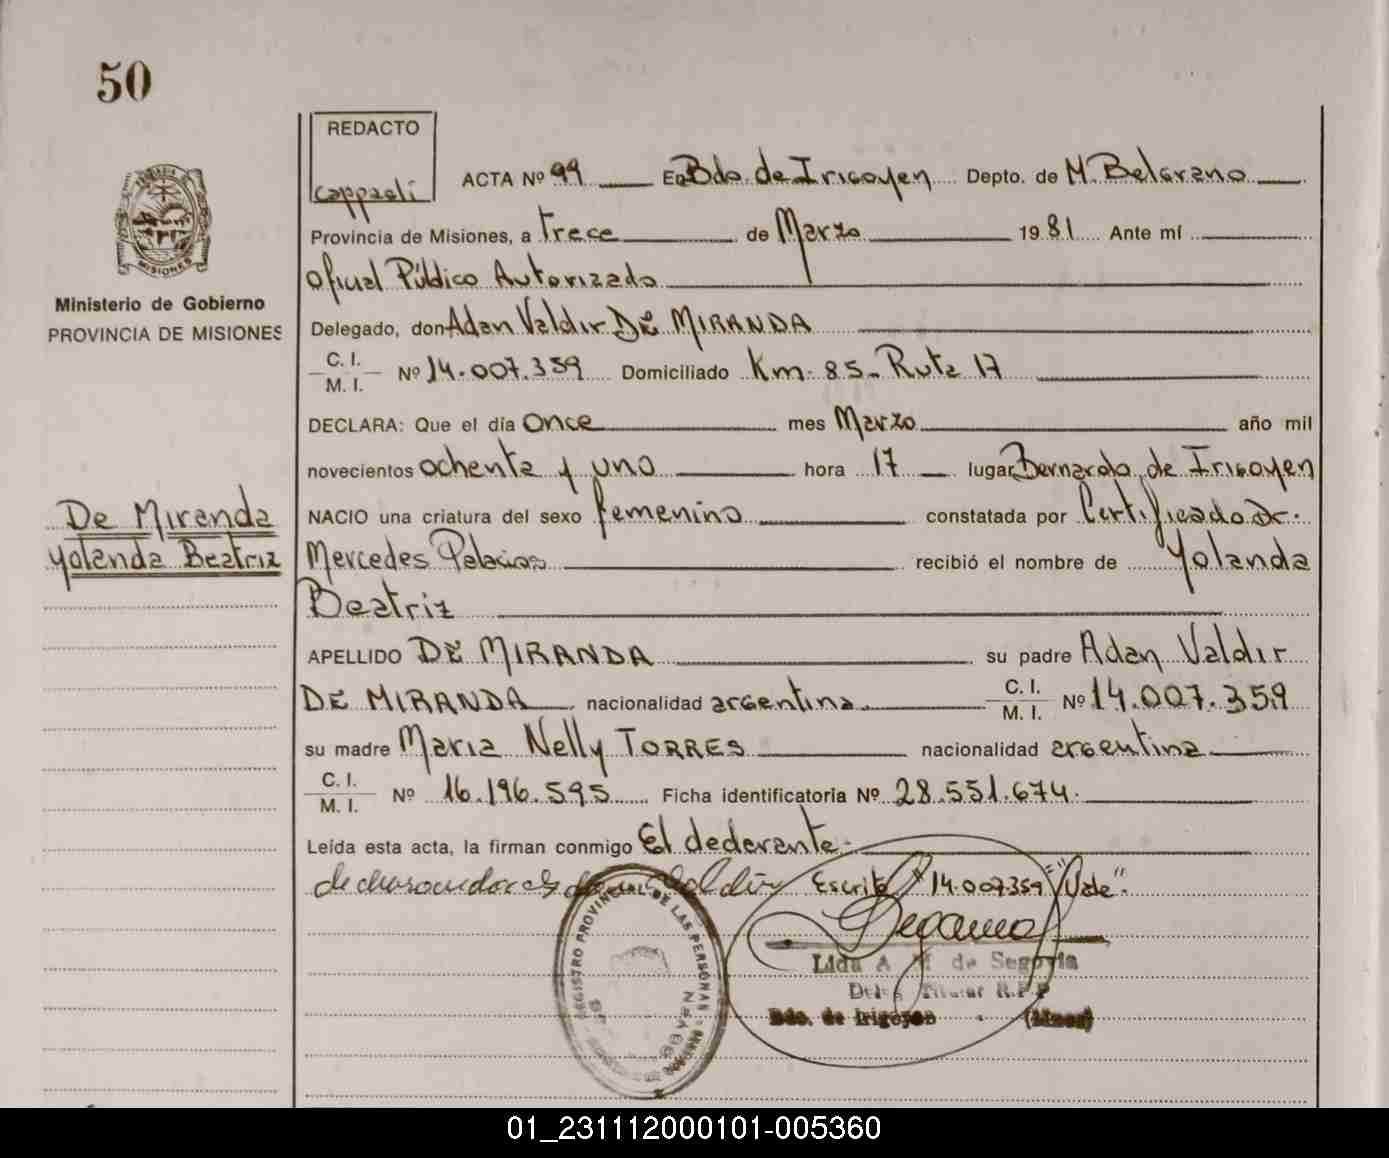 50
REDACTO
Cappaeli
ACTA Nº 99 En Bdo. de Irigoyen Depto. de M. Belgrano
Provincia de Misiones, a trece de Marzo 1981 Ante mí
Oficial Público Autorizado
MISIONES
Ministerio de Gobierno
PROVINCIA DE MISIONES
Delegado, don Adan Valdir DE MIRANDA
C. I.
M. I. Nº 14.007.359 Domiciliado Km. 85 - Ruta 17
DECLARA: Que el día Once mes Marzo año mil
novecientos ochenta y uno hora 17 lugar Bernardo de Irigoyen
De Miranda
Yolanda Beatriz
NACIO una criatura del sexo femenino constatada por Certificado Dr.
Mercedes Palacios recibió el nombre de Yolanda
Beatriz
APELLIDO DE MIRANDA su padre Adan Valdir
DE MIRANDA nacionalidad argentina C. I.
M. I. Nº 14.007.359
su madre Maria Nelly TORRES nacionalidad argentina
C. I.
M. I. Nº 16.196.595 Ficha identificatoria Nº 28.551.674.
Leída esta acta, la firman conmigo El declarante.
Escrito "14.007359" "Vale".
REGISTRO PROVINCIAL DE LAS PERSONAS
Lida A. M. de Segovia
Deleg. Titular R.P.P
Bdo. de Irigoyen (Mnes)
01_231112000101-005360